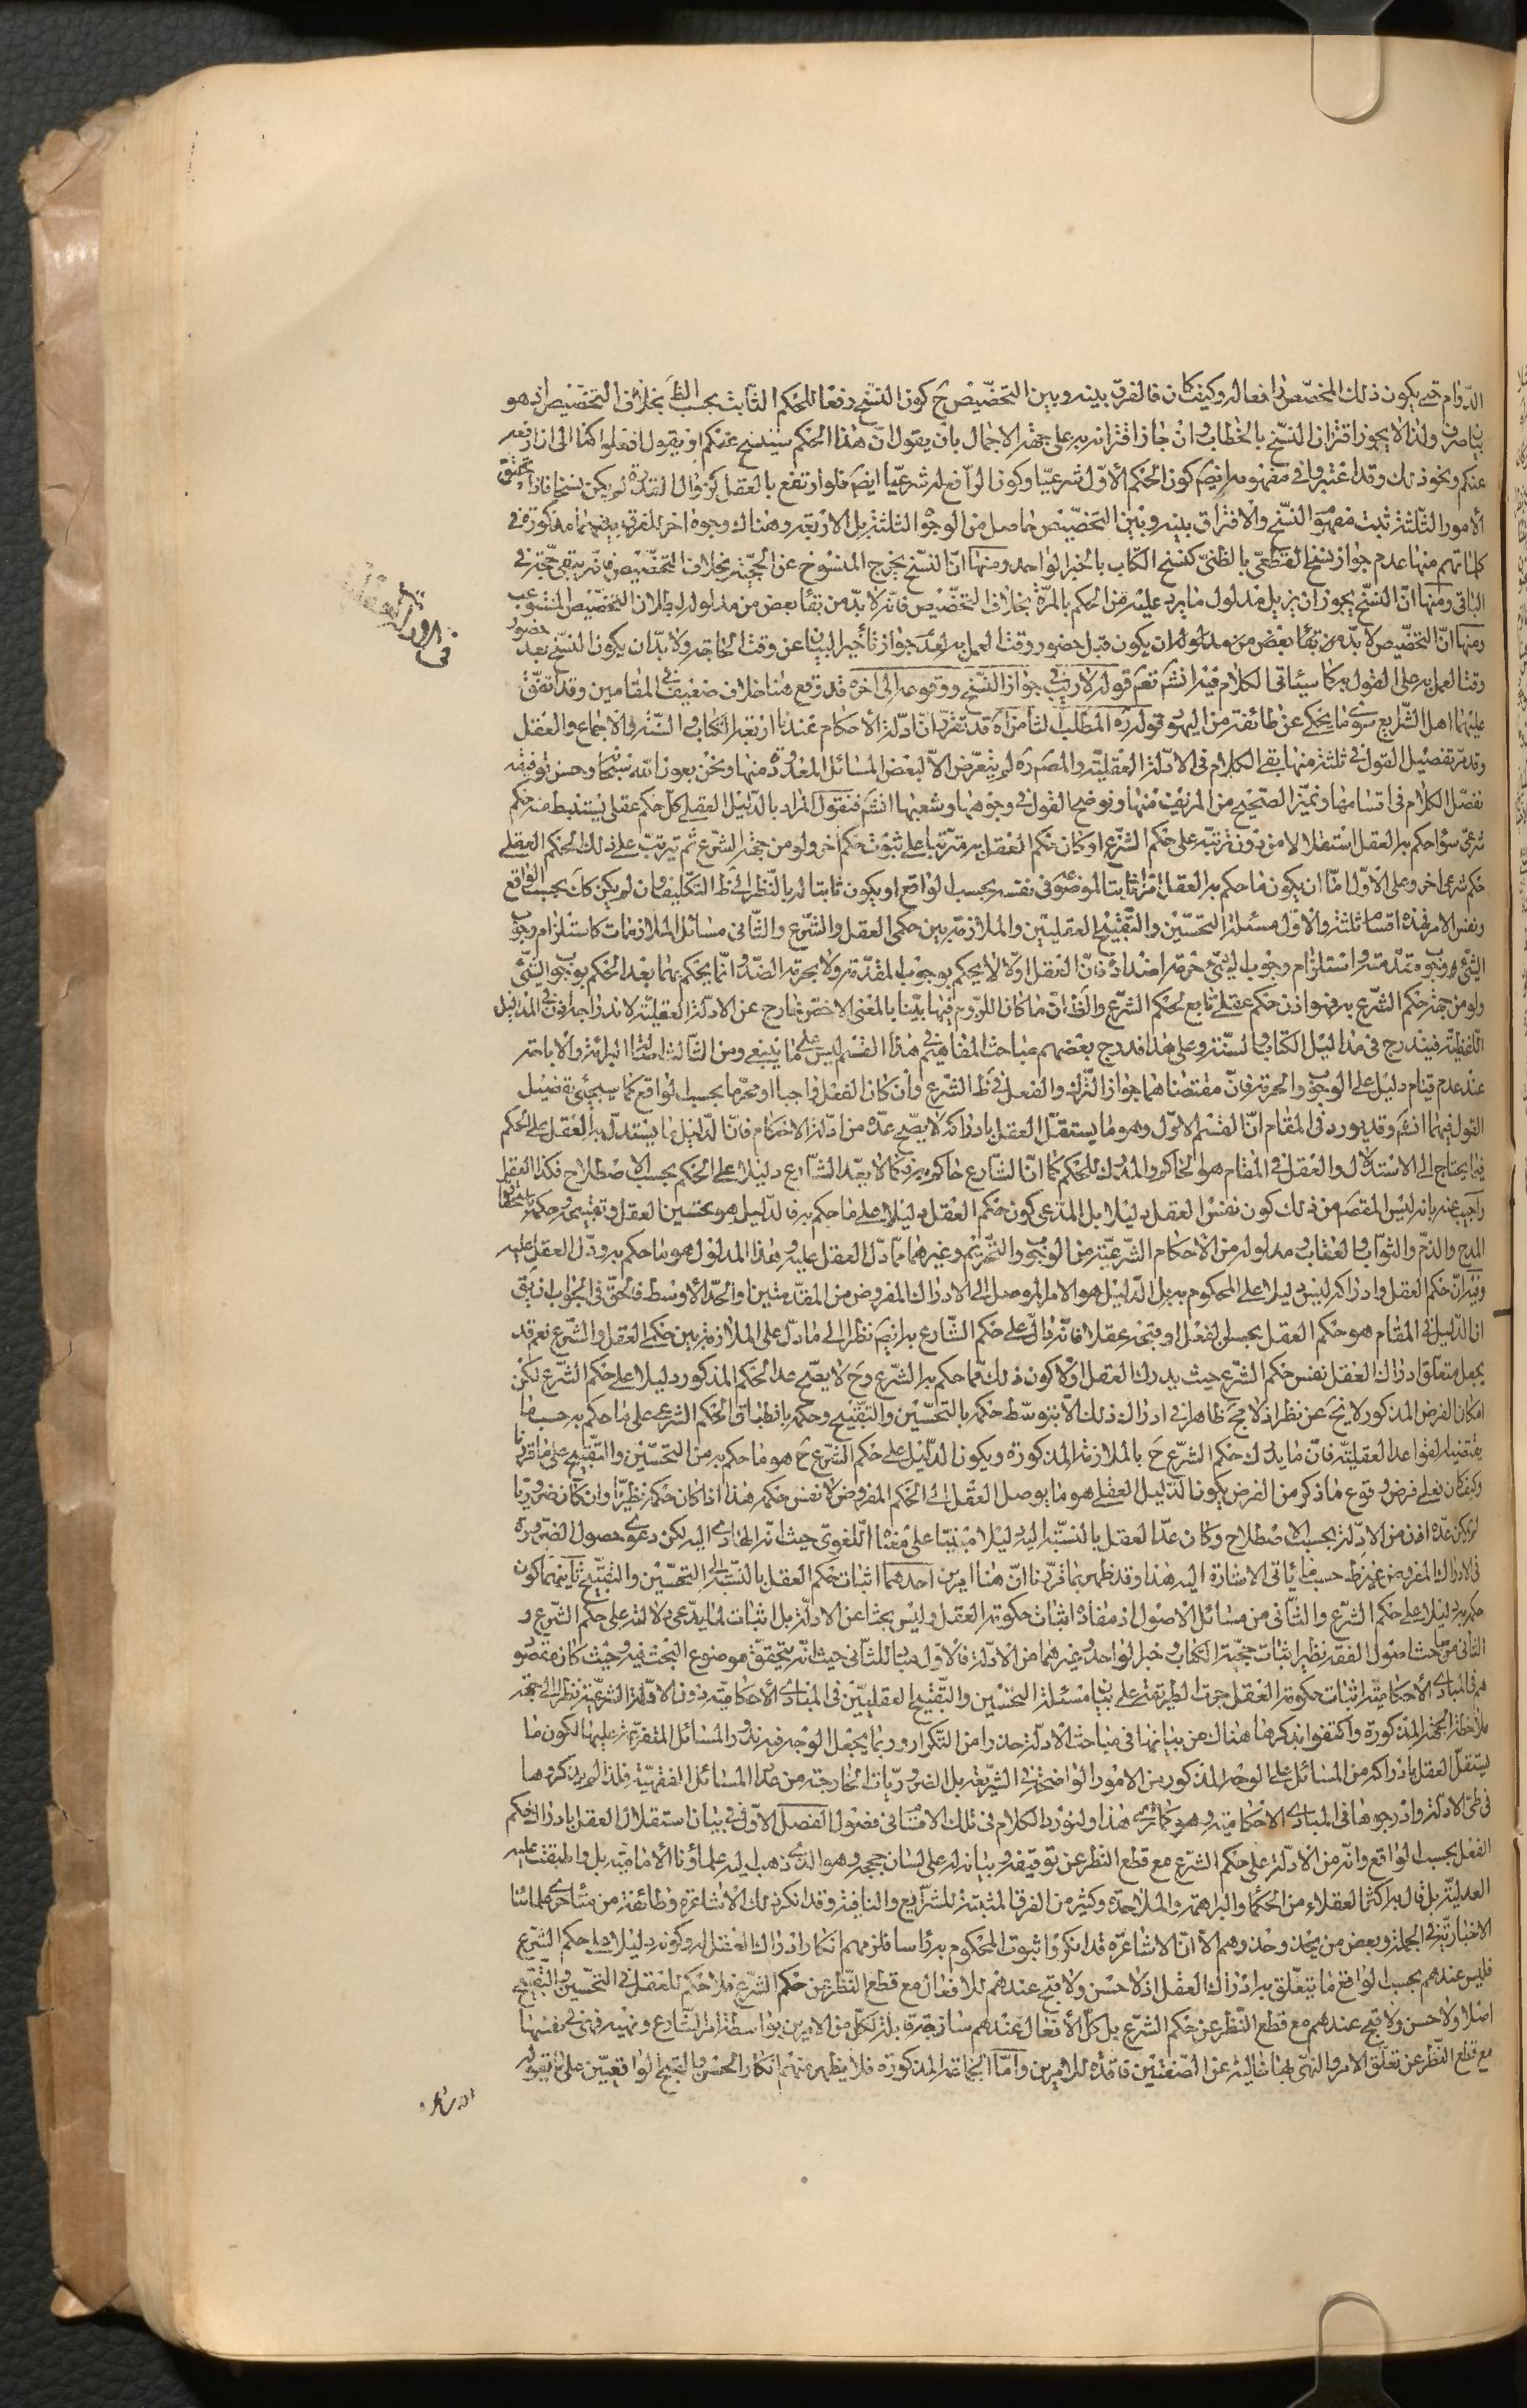 الدّوام حتى يكون ذلك المخصّص رافعا له وكيف كان فالفرق بينه وبين التخصّيص ح كون النسّخ رفعا للحكم الثابت بحسب الظ بخلاف التخصّيص اذ هو
بيان صرف ولذا لا يجوز اقتران النسّخ بالخطاب وان جاز اقترانه به على جهة الاجمال بان يقول ان هذا الحكم سينسخ عنكم او يقول افعلوا كذا الى ان ارفعه
عنكم ونحو ذلك وقد اعتبروا في مفهومه ايضا كون الحكم الاوّل شرعيّا وكون الرافع له شرعيّا ايضا فلو ارتفع بالعقل كزوال القدرة لم يكن نسخا فاذا تحقق
الامور الثلثة ثبت مفهوم النسّخ والافتراق بينه وبين التخصّيص حاصل من الوجوه الثلثة بل الاربعة وهناك وجوه اخر للفرق بينهما مذكورة في
كلماتهم منها عدم جواز نسخ القطعي بالظنّي كنسخ الكتاب بالخبر الواحد ومنها انّ النسّخ يخرج المنسوخ عن الحجّية بخلاف التخصّيص فانّه يبقى حجّة في
الباقي ومنها انّ النسّخ يجوز ان يزيل مدلول ما يرد عليه من الحكم بالمرّة بخلاف التخصّيص فانّه لا بدّ من بقاء بعض من مدلوله لبطلان التخصّيص المستوعب
ومنها انّ التخصّيص لا بدّ من ان يكون قبل حضور وقت العمل به لعدم جواز تأخير البيان عن وقت الحاجة ولا بدّ ان يكون النسّخ بعد حضور
وقت العمل به على القول به كما سيأتي الكلام فيه انشاء تعم قوله لا ريب في جواز النسّخ ووقوعه الى اخره قد وقع هنا خلاف ضعيف في المقامين وقد اتفق
عليهما اهل الشّرايع سوى ما يحكى عن طائفة من اليهود قوله ره المطلب الثامن اه قد تقرّر انّ ادلّة الاحكام عندنا اربعة الكتاب والسنّة والاجماع والعقل
وقد مرّ تفصيل القول في ثلثة منها بقى الكلام في الادلّة العقليّة والمصره لم يتعرّض الا لبعض المسائل المعدودة منها ونحن بعون الله سبحانه وحسن توفيقه
نفصّل الكلام في اقسامها ونميّز الصّحيح من المزيف منها ونوضح القول في وجوهها وشعبها انشاء فنقول المراد بالدّليل العقلي كل حكم عقلي يستنبط منه حكم
شرعيّ سواء حكم به العقل استقلالا من دون ترتّبه على حكم الشّرع او كان حكم العقل به مترتبا على ثبوت حكم اخر ولو من جهة الشّرع ثم يترتب على ذلك الحكم العقلي
حكم شرعي اخر وعلى الاوّل امّا ان يكون ما حكم به العقل امرا ثابتا للموضوع في نفسه بحسب الواقع او يكون ثابتا له بالنظر الى ظ التكليف وان لم يكن كك بحسب الواقع
ونفس الامر فهذه اقسام ثلثة والاوّل مسئلة التحسّين والتقبيح العقليين والملازمة بين حكمي العقل والشّرع والثّاني مسائل الملازمات كاستلزام وجوب
الشيء وجوب مقدّمته واستلزام وجوب الشيء حرمة اضداده فانّ العقل اولا لا يحكم بوجوب المقدّمة ولا بحرمة الضّد وانّما يحكم بهما بعد الحكم بوجوب الشّيء
ولو من جهة حكم الشّرع به فهو اذن حكم عقلي تابع لحكم الشّرع والظ انّ ما كان اللزوم فيها بيّنا بالمعنى الاخصّ خارج عن الادلّة العقليّة لاندراجه اذن في المداليل
اللّفظية فيندرج في مداليل الكتاب والسنّة وعلى هذا فدرج بعضهم مباحث المفاهيم في هذا القسم ليس على ما ينبغي ومن الثّالث اصالة البرائة والاباحة
عند عدم قيام دليل على الوجوب والحرمة فانّ مقتضاهما جواز التّرك والفعل في ظ الشّرع وان كان الفعل واجبا او محرّما بحسب الواقع كما سيجيئ تفصيل
القول فيهما انشاء وقد يورد في المقام انّ القسم الاوّل وهو ما يستقلّ العقل بادراكه لا يصّح عدّه من ادلّة الاحكام فانّ الدّليل ما يستدلّ به العقل على الحكم
فيما يحتاج الى الاستدلال والعقل في المقام هو الحاكم والمدرك للحكم كما انّ الشّارع حاكم به فكما لا يعدّ الشّارع دليلا على الحكم بحسب الاصطلاح فكذا العقل
واجيب عنه بانه ليس المقصم من ذلك كون نفس العقل دليلا بل المدّعى كون حكم العقل دليلا على ما حكم به فالدّليل هو تحسين العقل وتقبيحه وحكمه باستحقاق
المدح والذّم والثّواب والعقاب ومدلوله من الاحكام الشّرعيّة من الوجوب والتّحريم وغيرهما ممّا دلّ العقل عليه وهذا المدلول هو ما حكم به ودلّ العقل عليه
وفيه انّ حكم العقل وادراكه ليس دليلا على المحكوم به بل الدّليل هو الامر الموصل الى الادراك المفروض من المقدّمتين او الحدّ الاوسط فالحقّ في الجواب ان يق
انّ الدّليل في المقام هو حكم العقل بحسن الفعل او قبحه عقلا فانّه دالّ على حكم الشّارع به ايضم نظرا الى ما دلّ على الملازمة بين حكمي العقل والشّرع نعم قد
يجعل متعلّق ادراك العقل نفس حكم الشّرع حيث يدرك العقل اولا كون ذلك ممّا حكم به الشّرع وح لا يصّح عدّ الحكم المذكور دليلا على حكم الشّرع لكن
امكان الفرض المذكور لا يخ عن نظر اذ لا يخ ظاهرا في ادراك ذلك الا بتوسّط حكمه بالتحسّين والتقبيح وحكمه بانطباق الحكم الشرعي على ما حكم به حسبما
يقتضيه القواعد العقليّة فانّ ما يدرك حكم الشّرع ح بالملازمة المذكورة ويكون الدّليل على حكم الشّرع ح هو ما حكم به من التحسّين والتّقبيح على ما قرّرنا
وكيف كان فعلى فرض وقوع ما ذكر من الفرض يكون الدّليل العقلي هو ما يوصل العقل الى الحكم المفروض لا نفس حكمه هذا اذا كان حكمه نظريّا وان كان ضروريّا
لم يكن عدّه اذن من الادلّة بحسب الاصطلاح وكان عدّ العقل بالنسّبة اليه دليلا مبنيّا على معناه اللّغويّ حيث انّه الهادي اليه لكن دعوى حصول الضرورة
في الادراك المفروض غير ظ حسبما يأتي الاشارة اليه هذا وقد ظهر بما قرّرنا انّ هنا امرين احدهما اثبات حكم العقل بالنسبة الى التحسّين والتقبيح ثانيهما كون
حكمه دليلا على حكم الشّرع والثّاني من مسائل الاصول اذ مفاده اثبات حكومة العقل وليس بحثا عن الادلّة بل اثبات لما يدّعى دلالته على حكم الشّرع و
الثاني من مباحث اصول الفقه نظير اثبات حجّية الكتاب وخبر الواحد وغيرهما من الادلّة فالاوّل مباد للثاني حيث انّه يتحقق موضوع البحث فيه وحيث كان مقصود
هم في المبادي الاحكاميّة اثبات حكومة العقل جرت الطريقة على بيان مسئلة التحسّين والتّقبيح العقليين في المبادي الاحكاميّة دون الادلّة الشّرعيّة نظرا الى جهة
ملاحظة الجهة المذكورة واكتفوا بذكرها هناك عن بيانها في مباحث الادلّة حذرا من التّكرار وربّما يجعل الوجه فيه ندور المسائل المتفرّعة عليهما لكون ما
يستقلّ العقل بادراكه من المسائل على الوجه المذكور من الامور الواضحة في الشّريعة بل الضروريّات الخارجة من عداد المسائل الفقهيّة فلذا لم يذكروها
في طيّ الادلّة وادرجوها في المبادي الاحكاميّة وهو كما ترى هذا ولنورد الكلام في تلك الاقسام في فصول الفصل الاوّل في بيان استقلال العقل بادراك حكم
الفعل بحسب الواقع وانّه من الادلّة على حكم الشّرع مع قطع النّظر عن توقيفه وبيانه له على لسان حججه وهو الذّي ذهب اليه علماؤنا الاماميّة بل واطبقت عليه
العدليّة بل قال به اكثر العقلاء من الحكماء والبراهمة والملاحدة وكثير من الفرق المثبتة للشّرايع والنافية وقد انكر ذلك الاشاعرة وطائفة من متأخري علمائنا
الاخباريّة في الجملة وبعض من يحذو حذوهم الا انّ الاشاعرة قد انكروا ثبوت المحكوم به رأسا فلزمهم انكار ادراك العقل له وكونه دليلا على حكم الشّرع
فليس عندهم بحسب الواقع ما يتعّلق به ادراك العقل اذ لا حسن ولا قبح عندهم للافعال مع قطع النّظر عن حكم الشّرع فلا حكم للعقل في التحّسين والتّقبيح
اصلا ولا حسن ولا قبح عندهم مع قطع النّظر عن حكم الشّرع بل كلّ الافعال عندهم ساذجة قابلة لكلّ من الامرين بواسطة امر الشّارع ونهيه فهي في نفسها
مع قطع النّظر عن تعلّق الامر والنّهي بها خالية عن الصّفتين فاقدة للامرين وامّا الجماعة المذكورة فلا يظهر منهم انكار الحسن والقبح الواقعيّين على ما يقوله